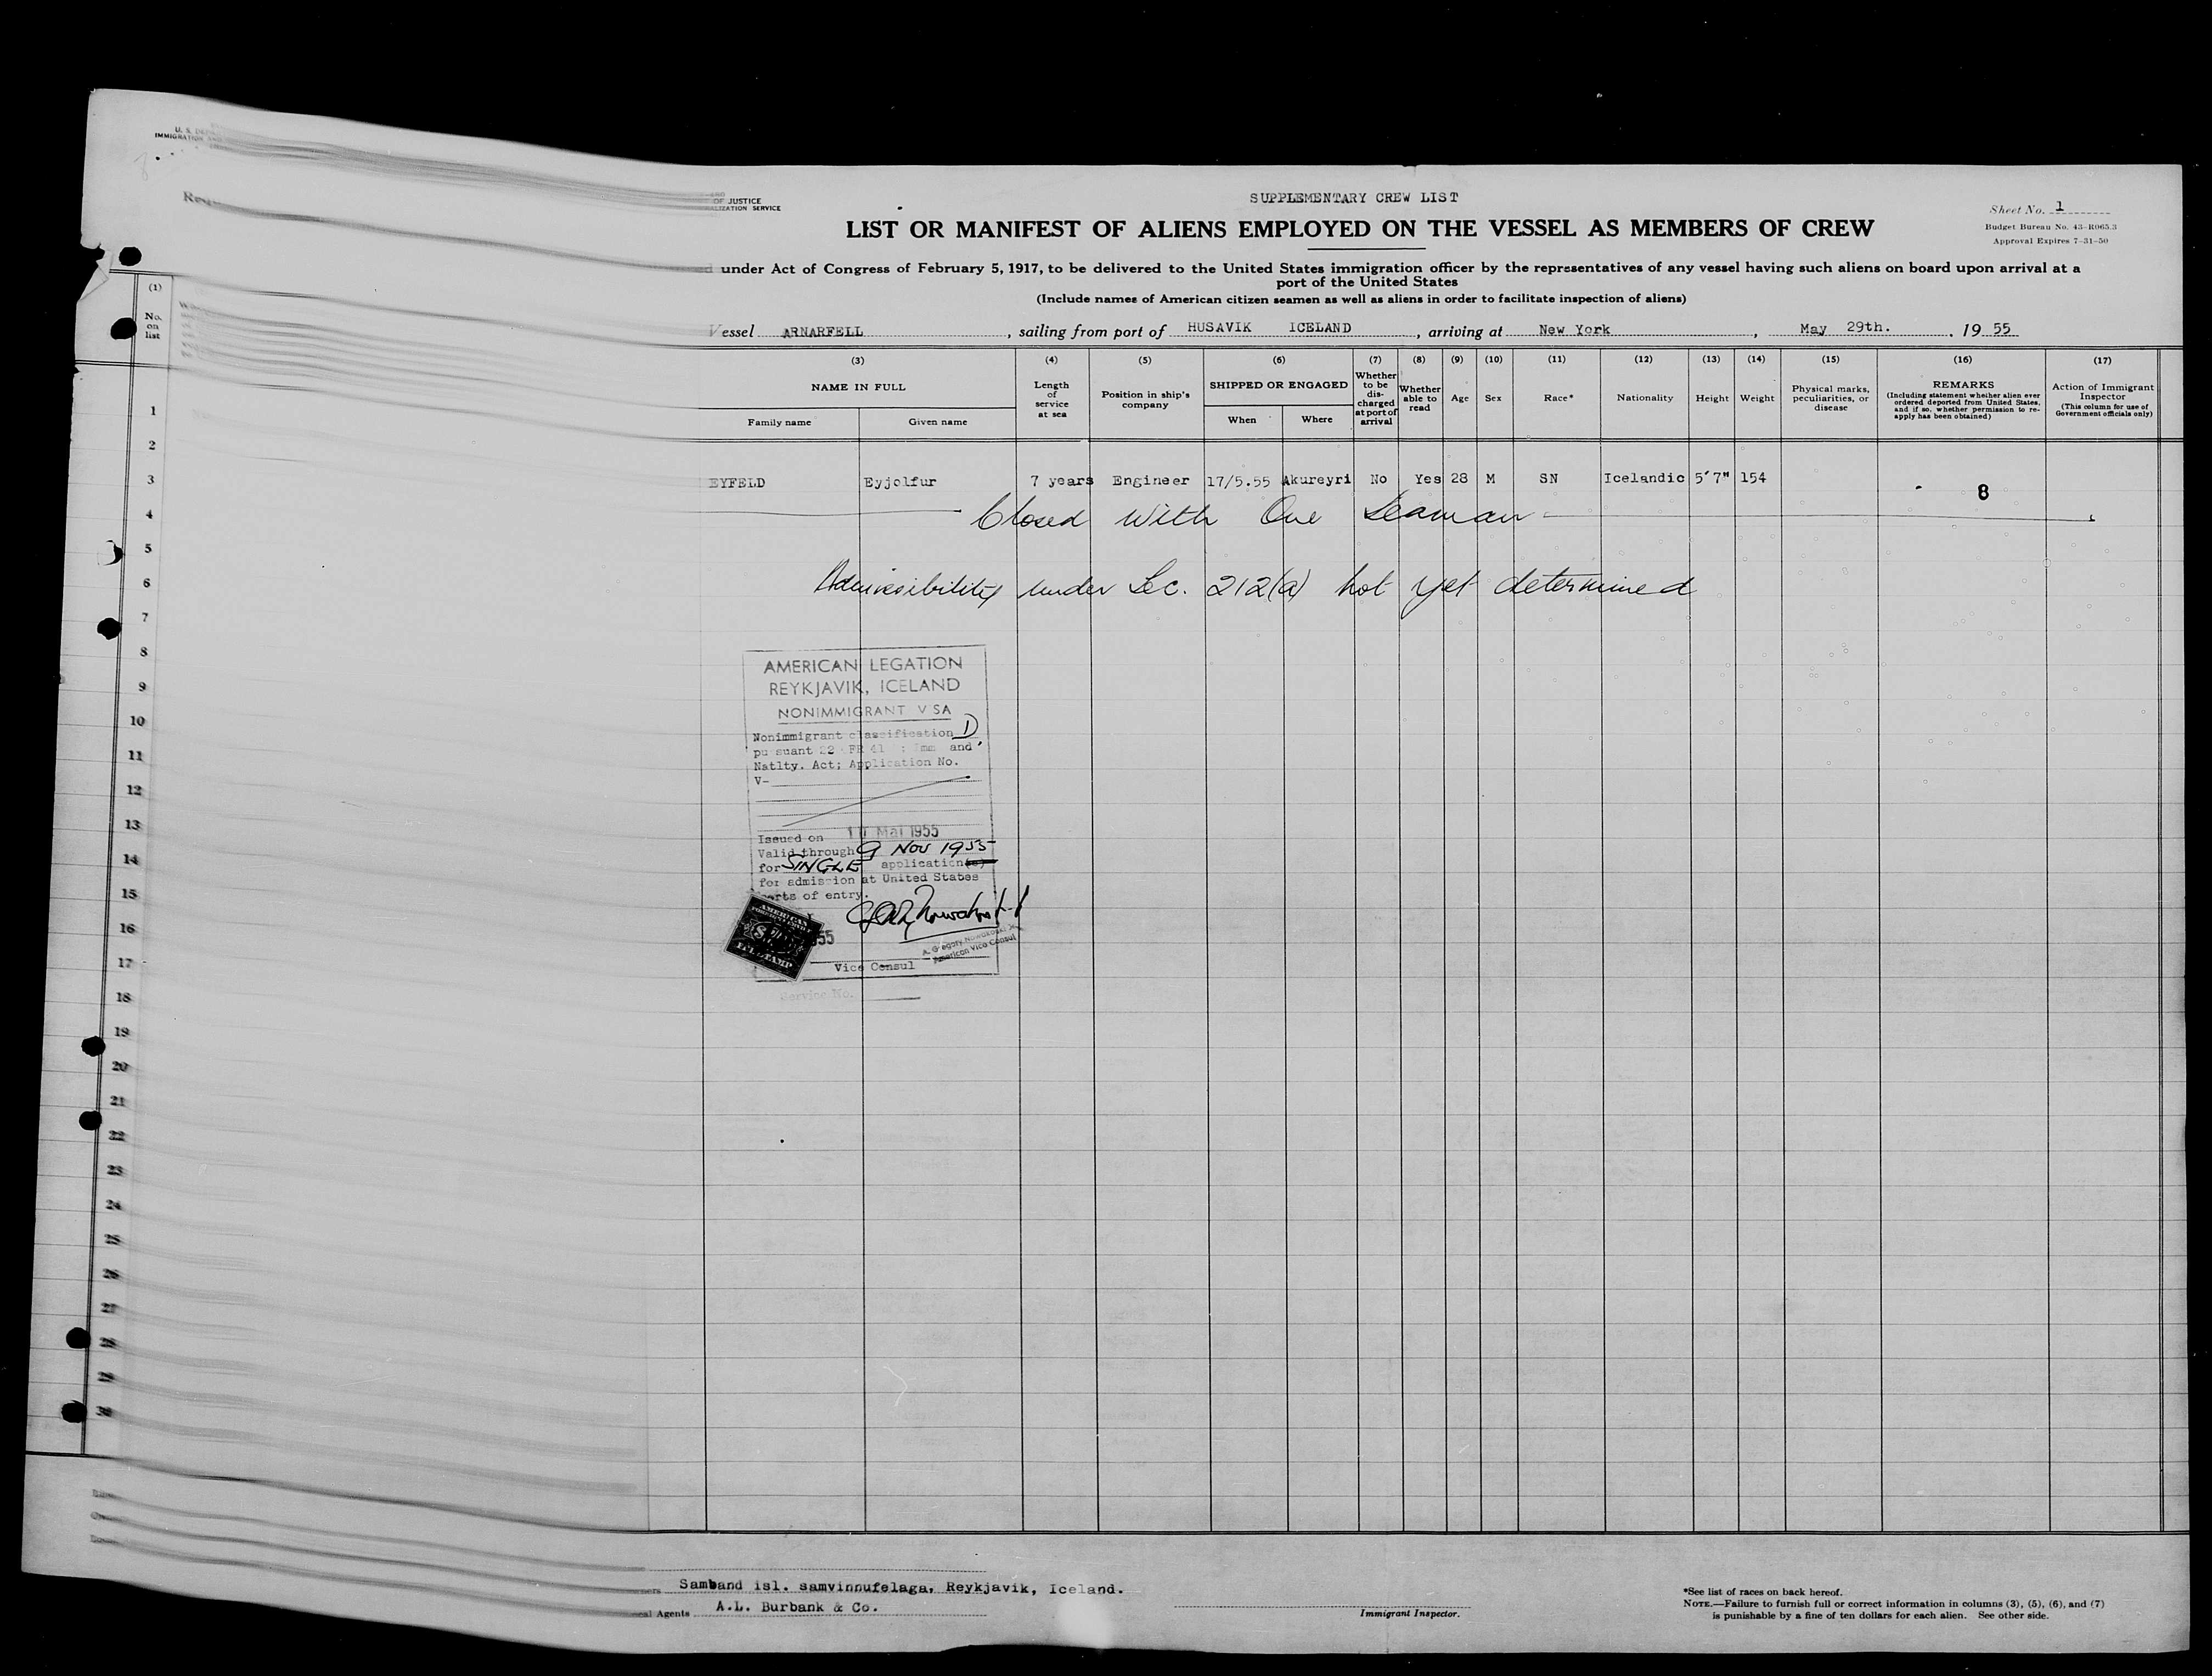 U. S. DEP
IMMIGRATION AND
OF JUSTICE
LIZATION SERVICE
SUPPLEMENTARY CREW LIST
Sheet No. 1
Budget Bureau No. 43-R065.3
Approval Expires 7-31-50
LIST OR MANIFEST OF ALIENS EMPLOYED ON THE VESSEL AS MEMBERS OF CREW
under Act of Congress of February 5, 1917, to be delivered to the United States immigration officer by the representatives of any vessel having such aliens on board upon arrival at a
port of the United States
(Include names of American citizen seamen as well as aliens in order to facilitate inspection of aliens)
Vessel ARNARFELL, sailing from port of HUSAVIK ICELAND, arriving at New York, May 29th. 19 55
(1) (3) (4) (5) (6) (7) (8) (9) (10) (11) (12) (13) (14) (15) (16) (17)
No. on list
NAME IN FULL
Family name Given name
Length of service at sea
Position in ship's company
SHIPPED OR ENGAGED
When Where
Whether to be discharged at port of arrival
Whether able to read
Age
Sex
Race*
Nationality
Height
Weight
Physical marks, peculiarities, or disease
REMARKS
(Including statement whether alien ever ordered deported from United States, and if so, whether permission to re-apply has been obtained)
Action of Immigrant Inspector
(This column for use of Government officials only)
1
2
3 EYFELD Eyjolfur 7 years Engineer 17/5.55 Akureyri No Yes 28 M SN Icelandic 5'7" 154
8
4 Closed With One Seaman
5
6 Admissibility under Sec. 212(a) not yet determined
7
8
9
10
11
12
13
14
15
16
17
18
19
20
21
22
23
24
25
26
27
28
29
30
AMERICAN LEGATION
REYKJAVIK, ICELAND
NONIMMIGRANT V SA
Nonimmigrant classification D
pu suant 22 FR 41 : Imm and
Natlty. Act; Application No.
V-
Issued on 10 Mai 1955
Valid through 9 Nov 1955
for SINGLE application(s)
for admission at United States
ports of entry.
AMERICAN
55
A. Gregory Nowakoski Jr.
American Vice Consul
Vice Consul
Service No.
Samband isl. samvinnufelaga, Reykjavik, Iceland.
Agents A.L. Burbank & Co.
Immigrant Inspector.
*See list of races on back hereof.
NOTE.—Failure to furnish full or correct information in columns (3), (5), (6), and (7)
is punishable by a fine of ten dollars for each alien. See other side.